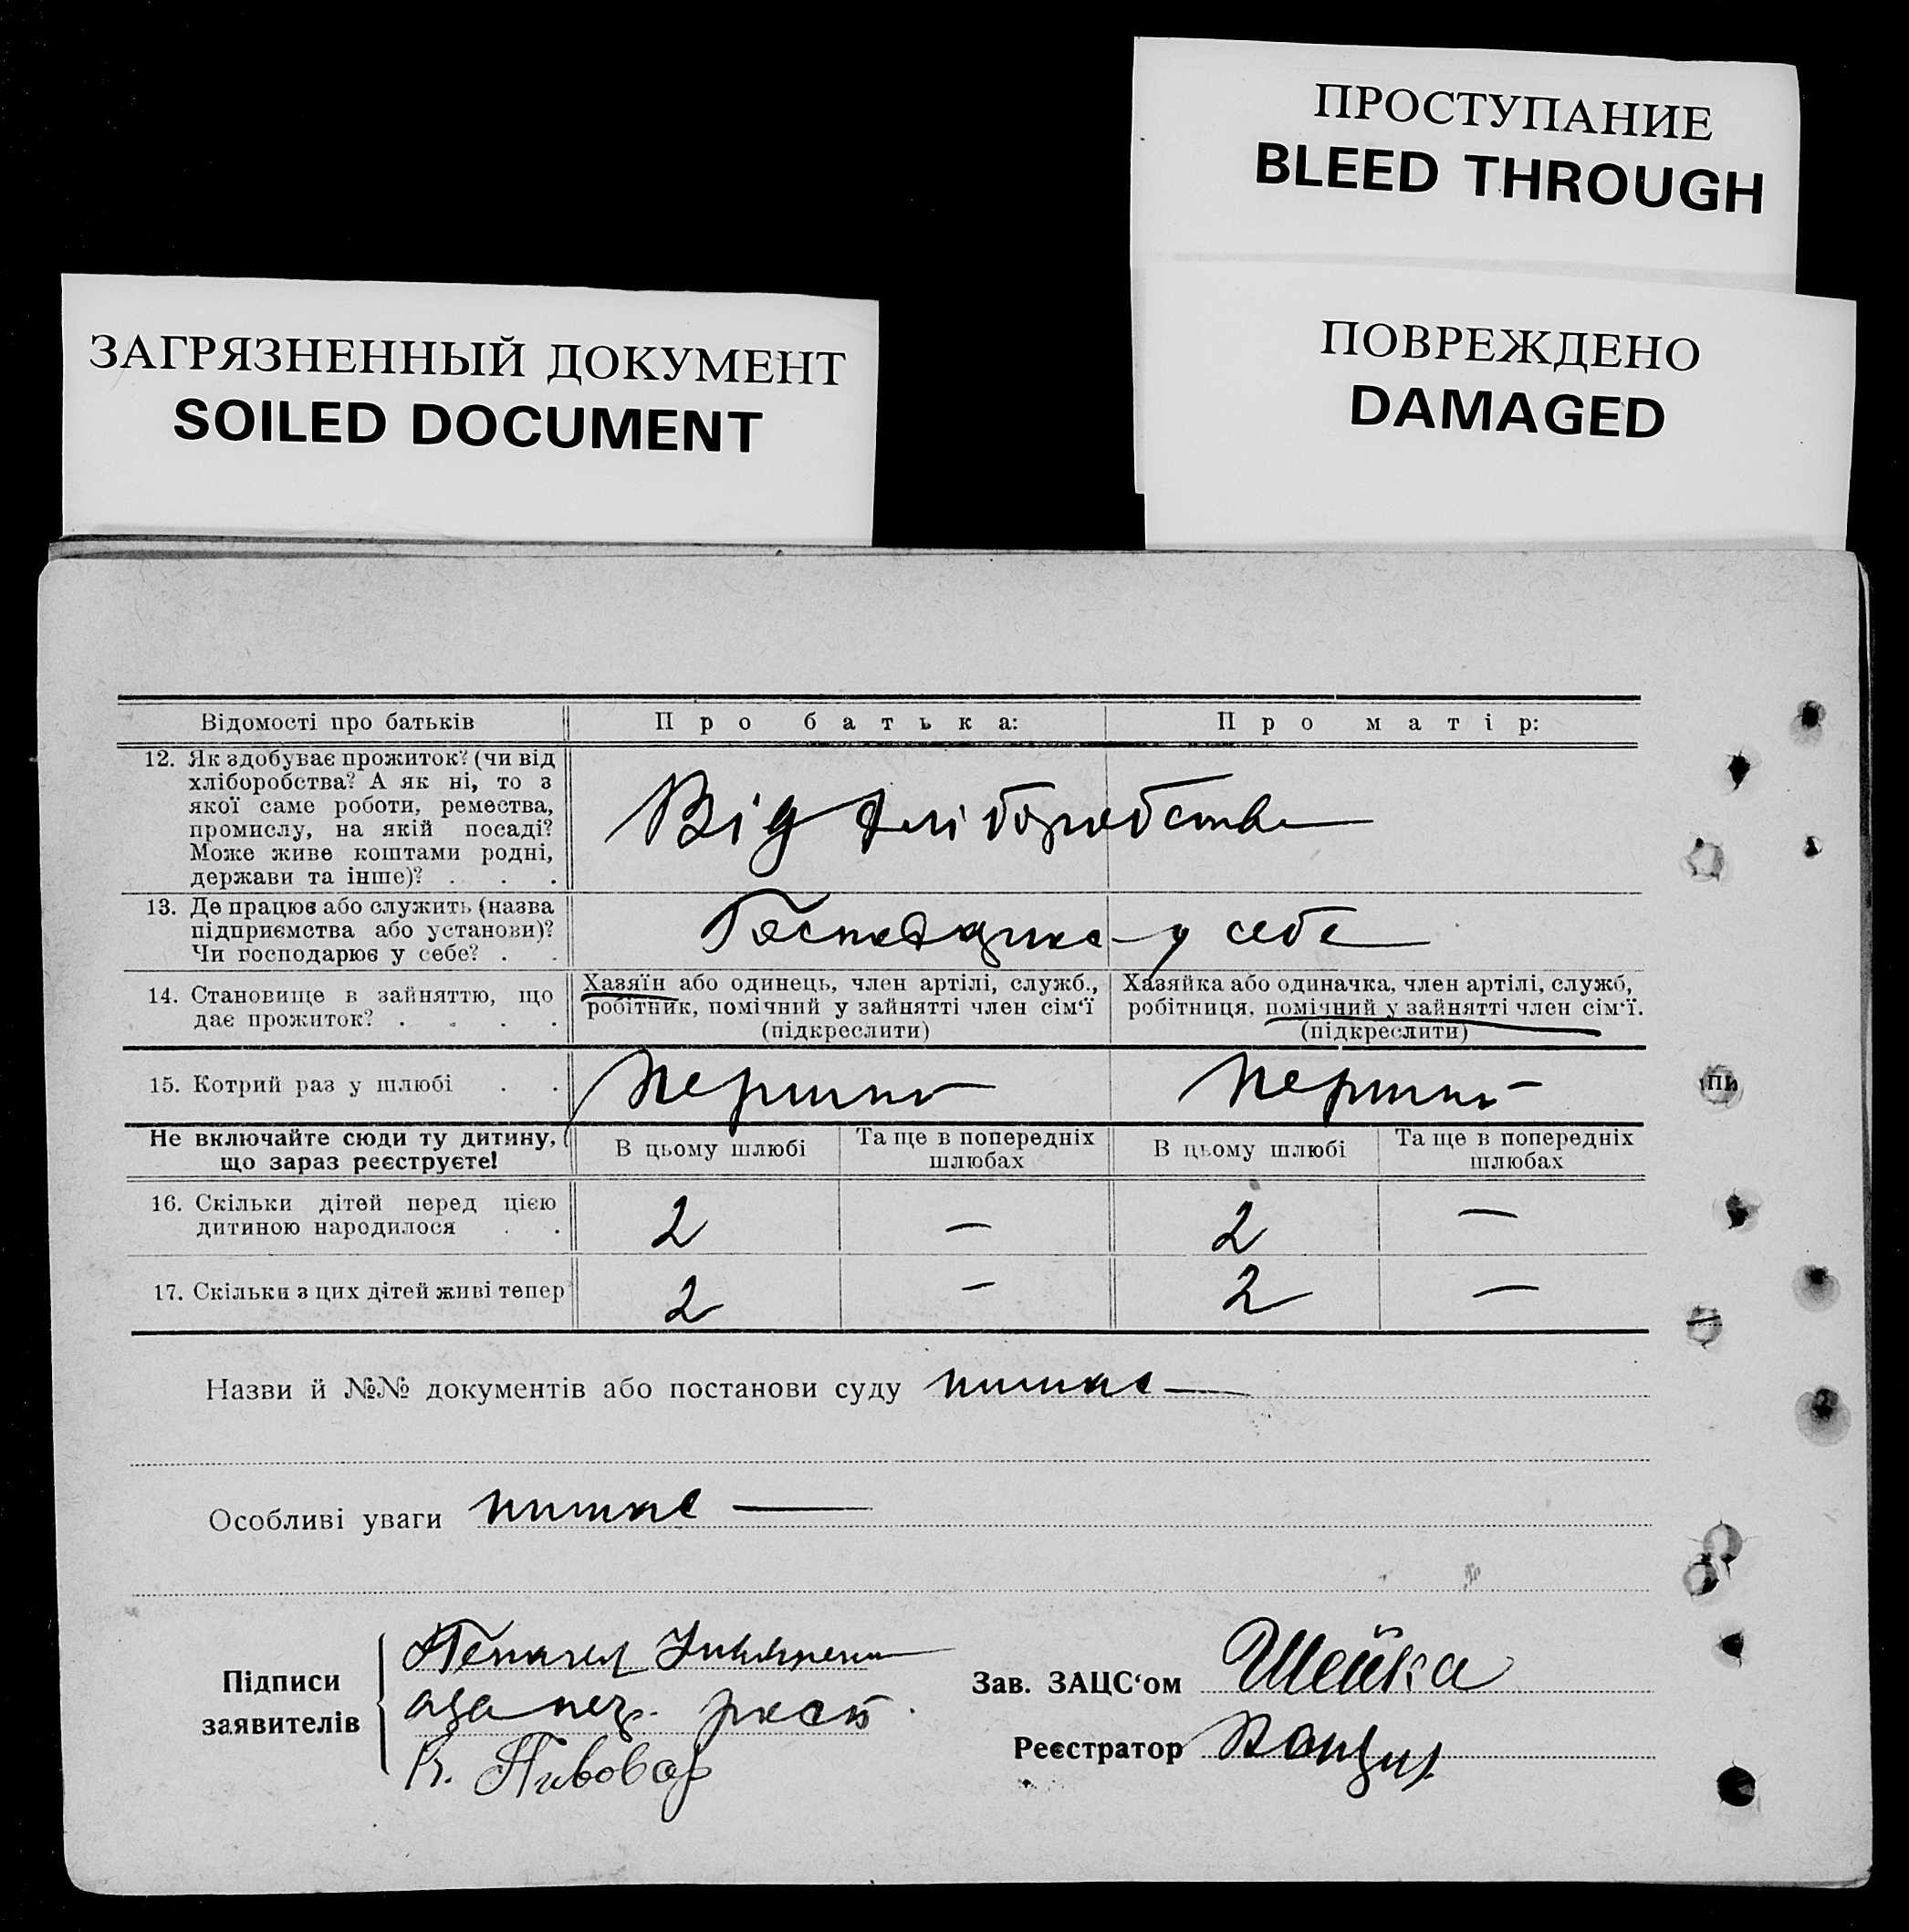 ПРОСТУПАНИЕ
BLEED THROUGH
ЗАГРЯЗНЕННЫЙ ДОКУМЕНТ
SOILED DOCUMENT
ПОВРЕЖДЕНО
DAMAGED
Відомості про батьків
Про батька:
Про матір:
12. Як здобуває прожиток? (чи від
хліборобства? А як ні, то з
якої саме роботи, ремества,
промислу, на якій посаді?
Може живе коштами родні,
держави та інше)? . . .
Від хліборобства
13. Де працює або служить (назва
підприємства або установи)?
Чи господарює у себе? . .
у себе
14. Становище в зайняттю, що
дає прожиток? . . . .
Хазяїн або одинець, член артілі, служб.,
робітник, помічний у зайнятті член сім'ї
(підкреслити)
Хазяйка або одиначка, член артілі, служб,
робітниця, помічний у зайнятті член сім'ї.
(підкреслити)
15. Котрий раз у шлюбі . .
Не включайте сюди ту дитину,
що зараз реєструєте!
В цьому шлюбі
Та ще в попередніх
шлюбах
В цьому шлюбі
Та ще в попередніх
шлюбах
16. Скільки дітей перед цією
дитиною народилося . .
2 — 2 —
17. Скільки з цих дітей живі тепер
2 — 2 —
Назви й №№ документів або постанови суду
Особливі уваги
Підписи
заявителів
К. Пивовар
Зав. ЗАЦС'ом Шейка
Реєстратор